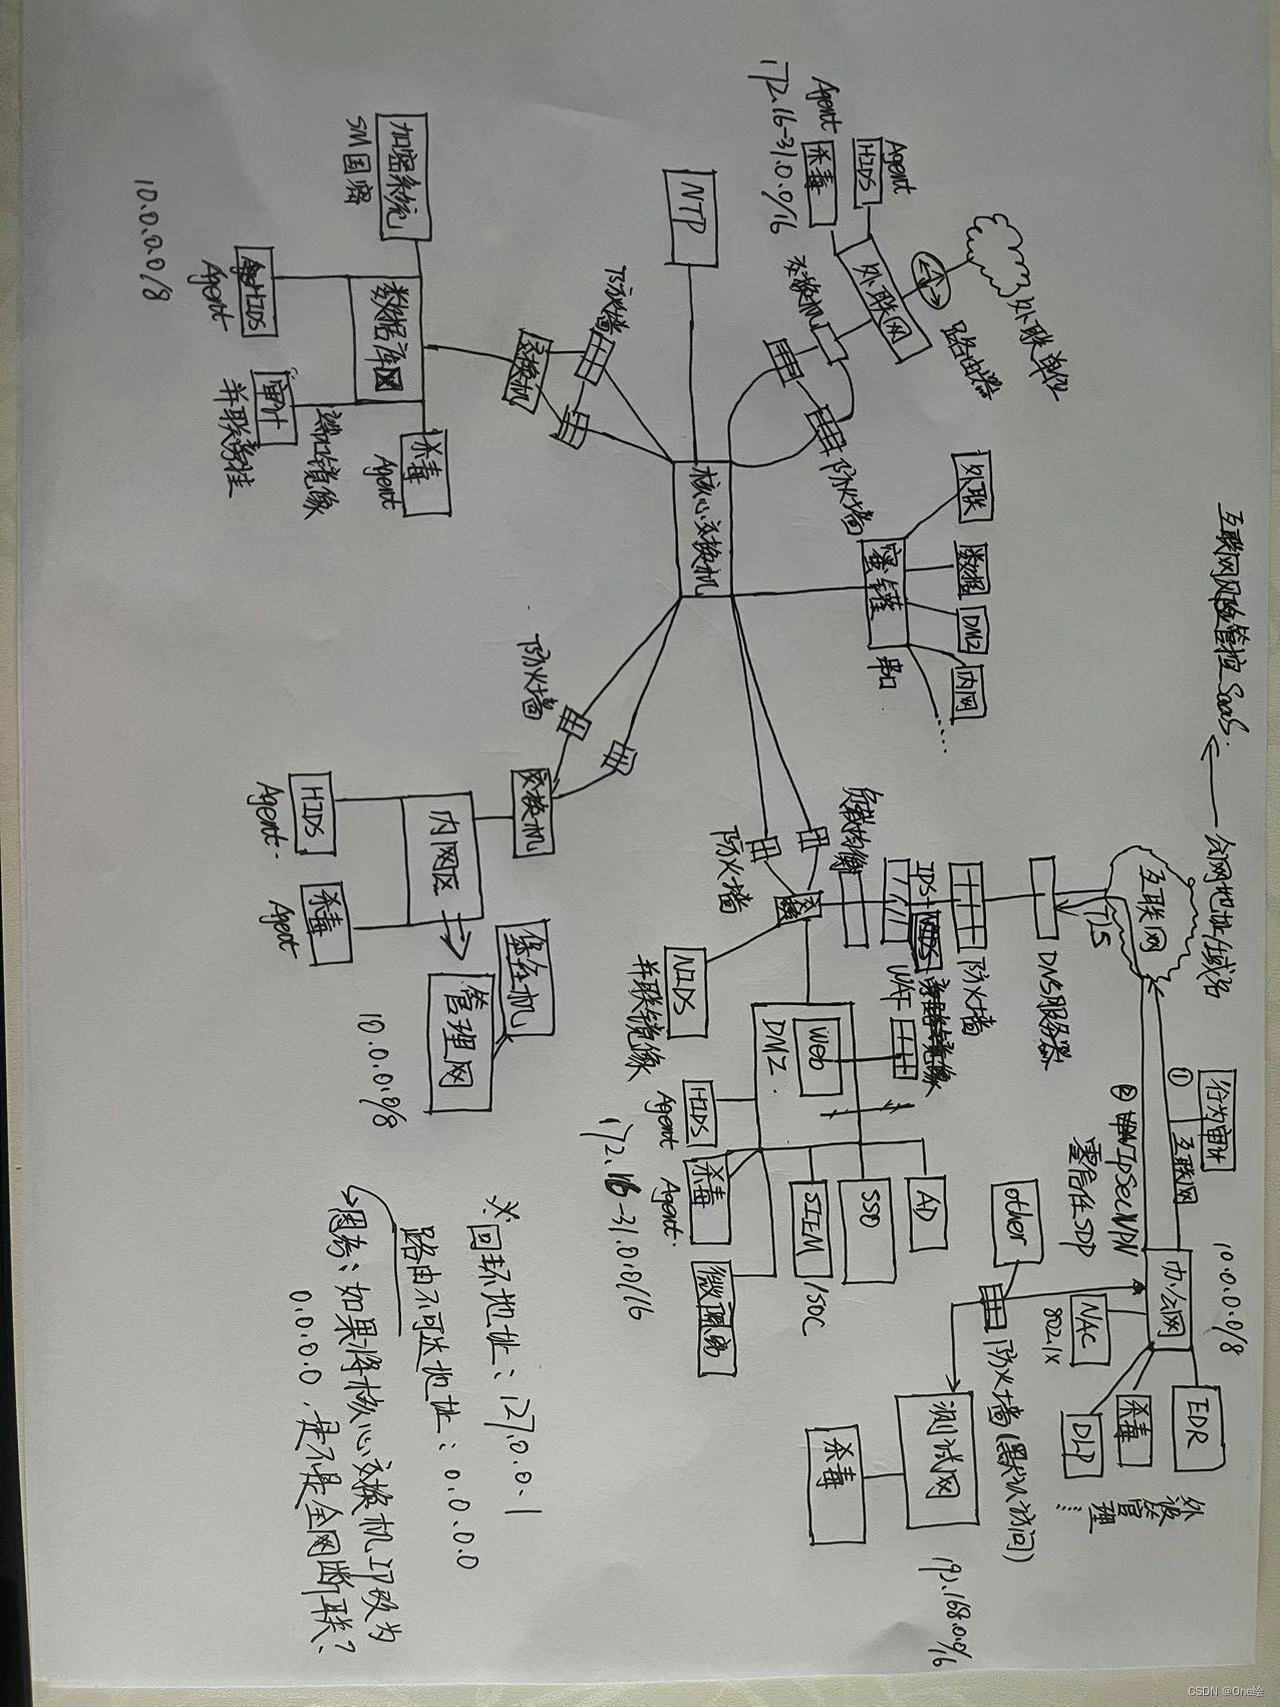 互联网风险管控SaaS.
公网地址/域名
互联网
TLS
DNS服务器
防火墙
IPS+
WAF
负载均衡
交换
防火墙
NIDS
并联镜像
DMZ.
Web
HIDS
Agent
杀毒
Agent.
SIEM
/SOC
SSO
AD
172.16-31.0.0/16
行为审计
①
互联网
②
IPSecVPN
零信任SDP
办公网
10.0.0.0/8
NAC
802.1X
EDR
杀毒
DLP
外设管理
……
other
防火墙(默认访问)
测试网
杀毒
192.168.0.0/16
外联单位
路由器
外联网
HIDS
Agent
杀毒
Agent
172.16-31.0.0/16
交换机
防火墙
NTP
核心交换机
蜜罐
串口
外联
数据
DMZ
内网
……
防火墙
交换机
数据库网
加密系统
SM国密
HIDS
Agent
审计
并联旁挂
端口镜像
杀毒
Agent
10.0.0.0/8
防火墙
交换机
内网区
HIDS
Agent.
杀毒
Agent
管理网
堡垒机
10.0.0.0/8
※:回环地址:127.0.0.1
路由不可达地址:0.0.0.0
思考:如果将核心交换机IP改为
0.0.0.0,是不是全网断联?
CSDN @One绘